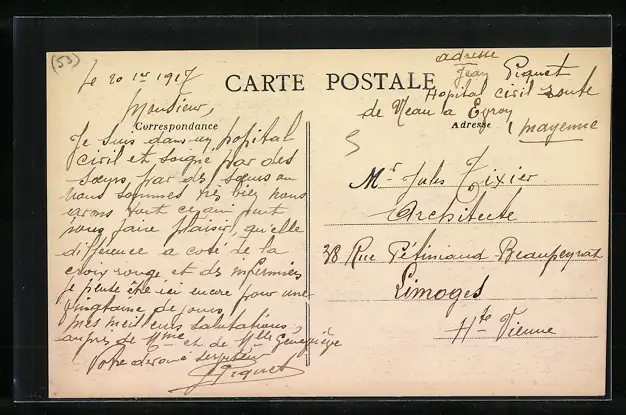 (53)
le 20 1er 1917
CARTE POSTALE
adresse
Jean Piquet
Hopital civil route
de Neau a Evron
mayenne
Monsieur,
Correspondance
Adresse
Je suis dans un hopital
civil et soigné par des
sœurs, par des sœurs ou
nous sommes très bien nous
avons tout ce qui peut
nous faire plaisir, qu'elle
différence a coté de la
croix rouge et des infirmiers
je peute être ici encore pour une
vingtaine de jours
mes meilleurs salutations
aupres de Mme et de Mlle Geneviève
Votre dévoué serviteur
J Piquet
Mr Jules Tixier
Architecte
38 Rue Pétiniaud Beaupeyrat
Limoges
Hte Vienne